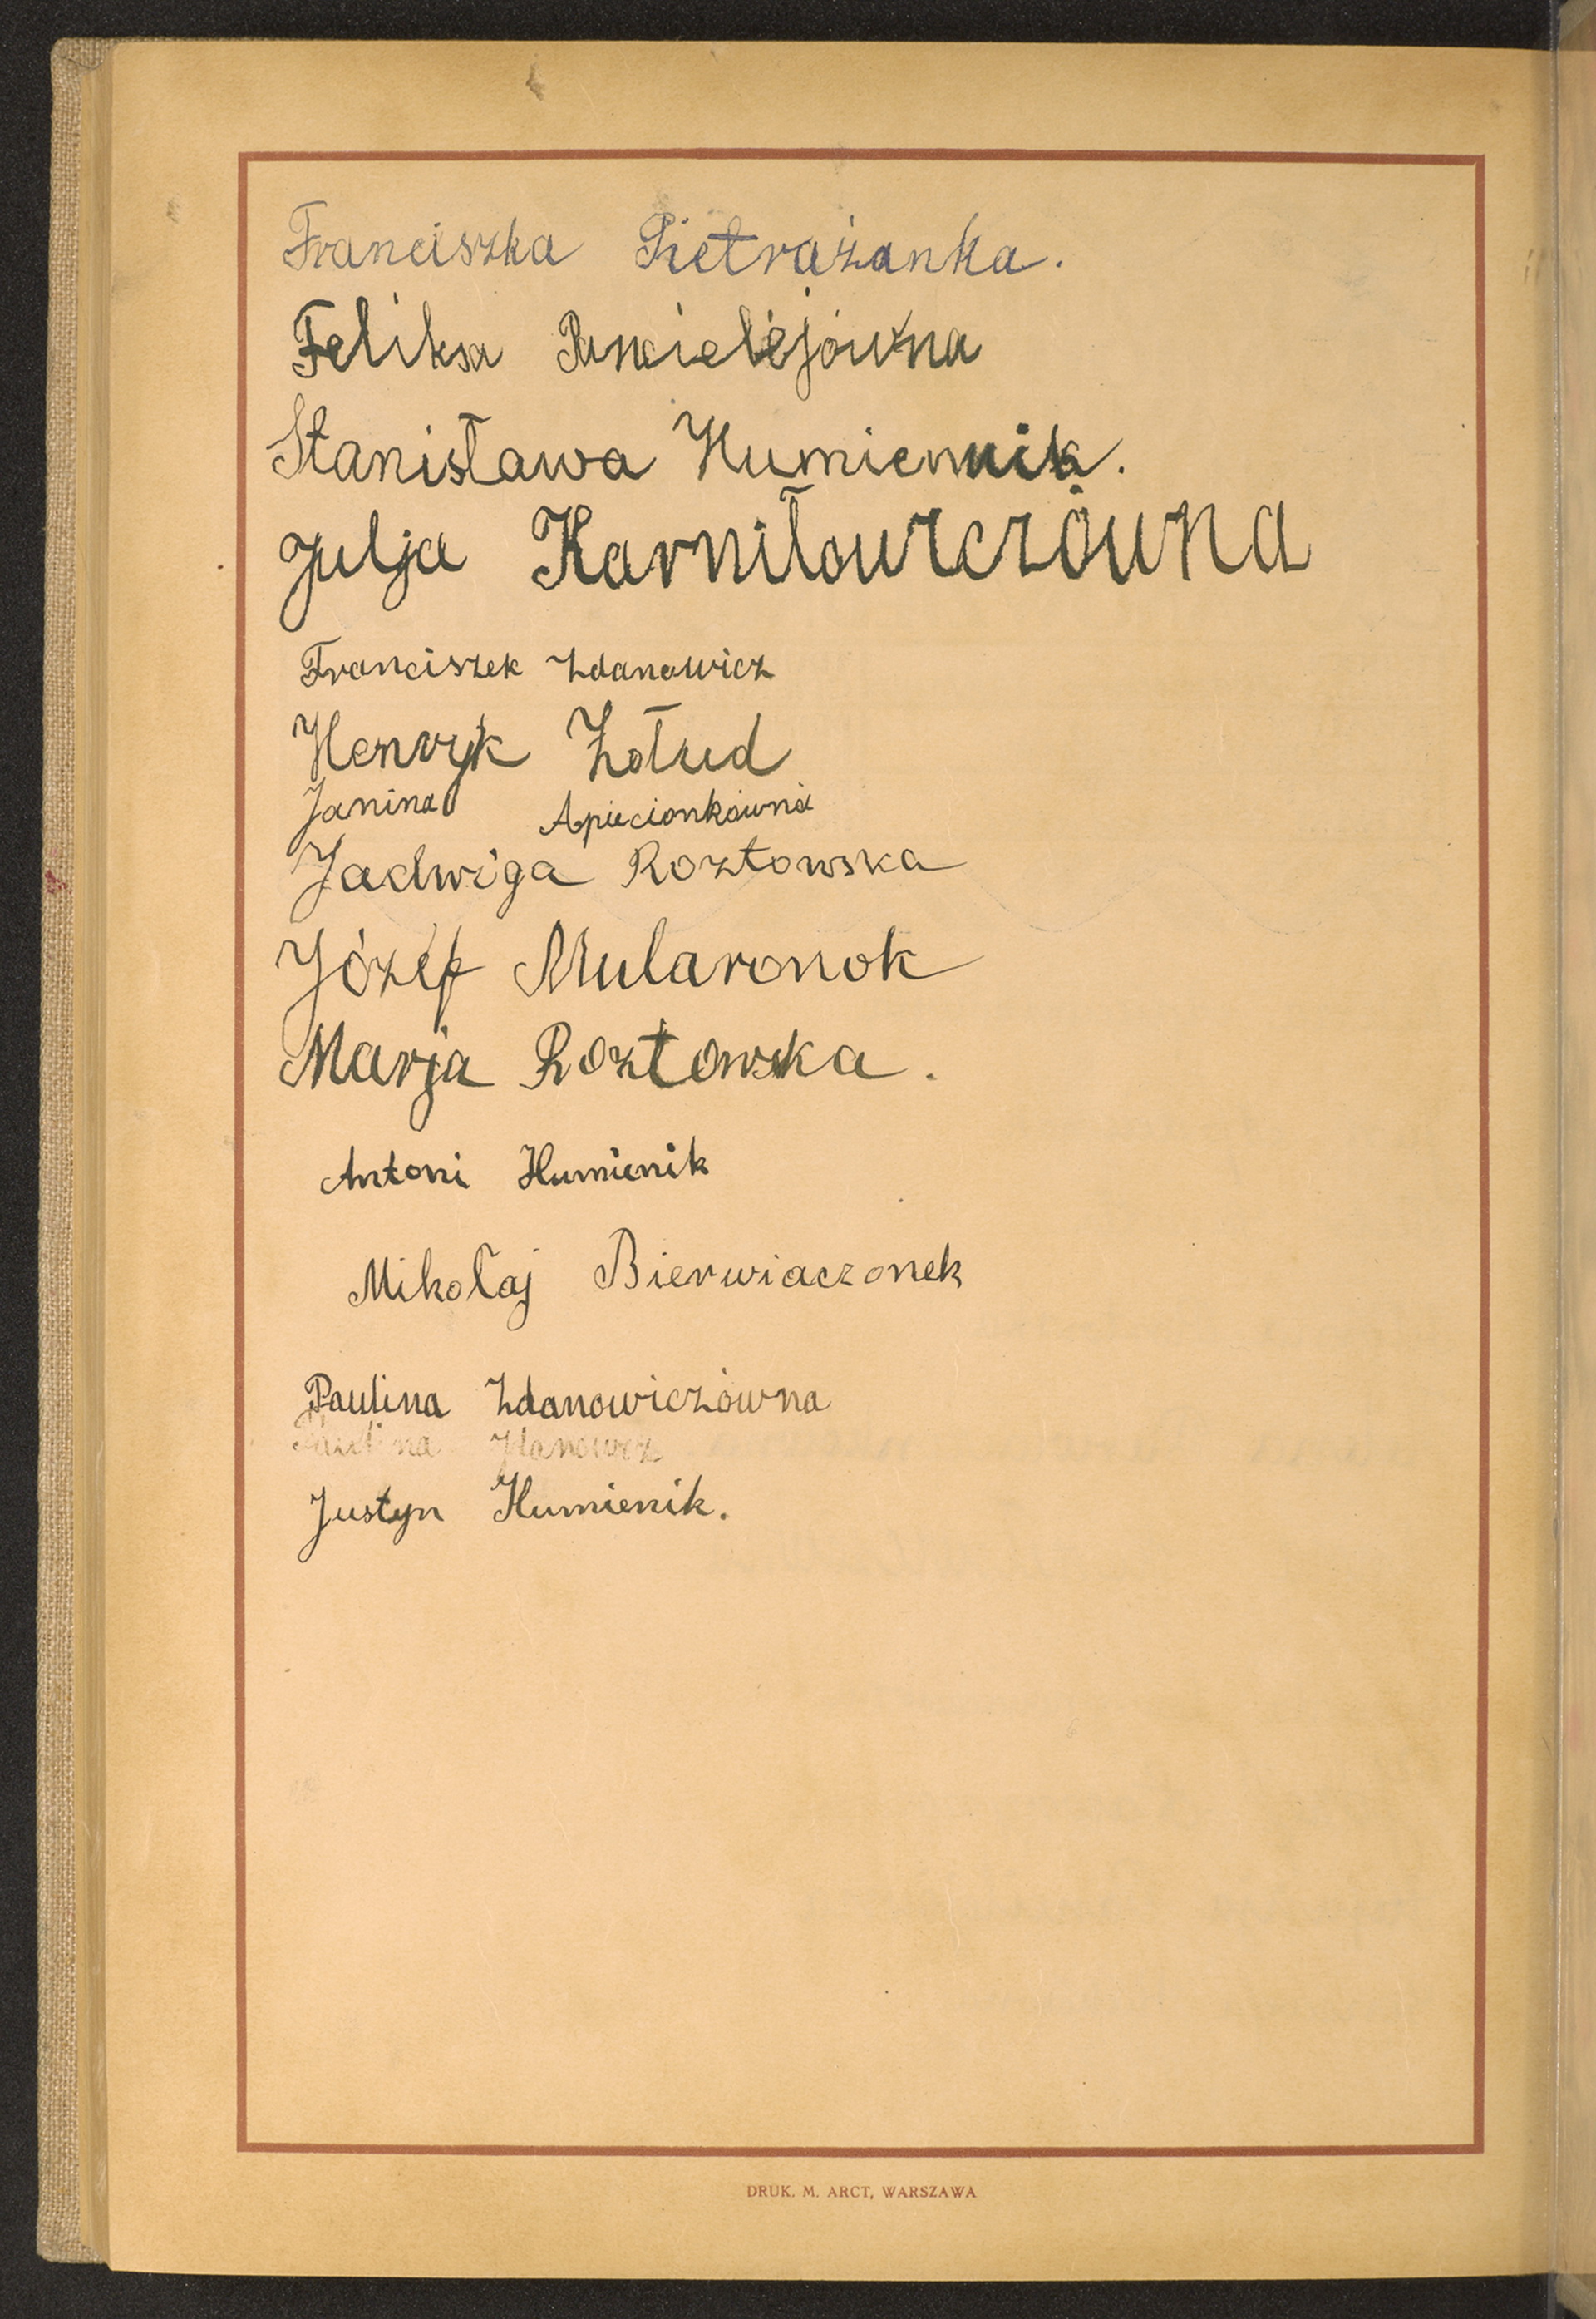 Franciszka Pietrażanka.
Feliksa Pancielejówna
Stanisława Humiennik.
Julja Karniłowiczówna
Franciszek Zdanowicz
Henryk Żołud
Janina Apiecionkówna
Jadwiga Roztowska
Józef Mularonok
Marja Roztowska.
Antoni Humienik
Mikołaj Bierwiaczonek
Paulina Zdanowiczówna
Paulina Zdanowicz
Justyn Humienik.
DRUK. M. ARCT, WARSZAWA